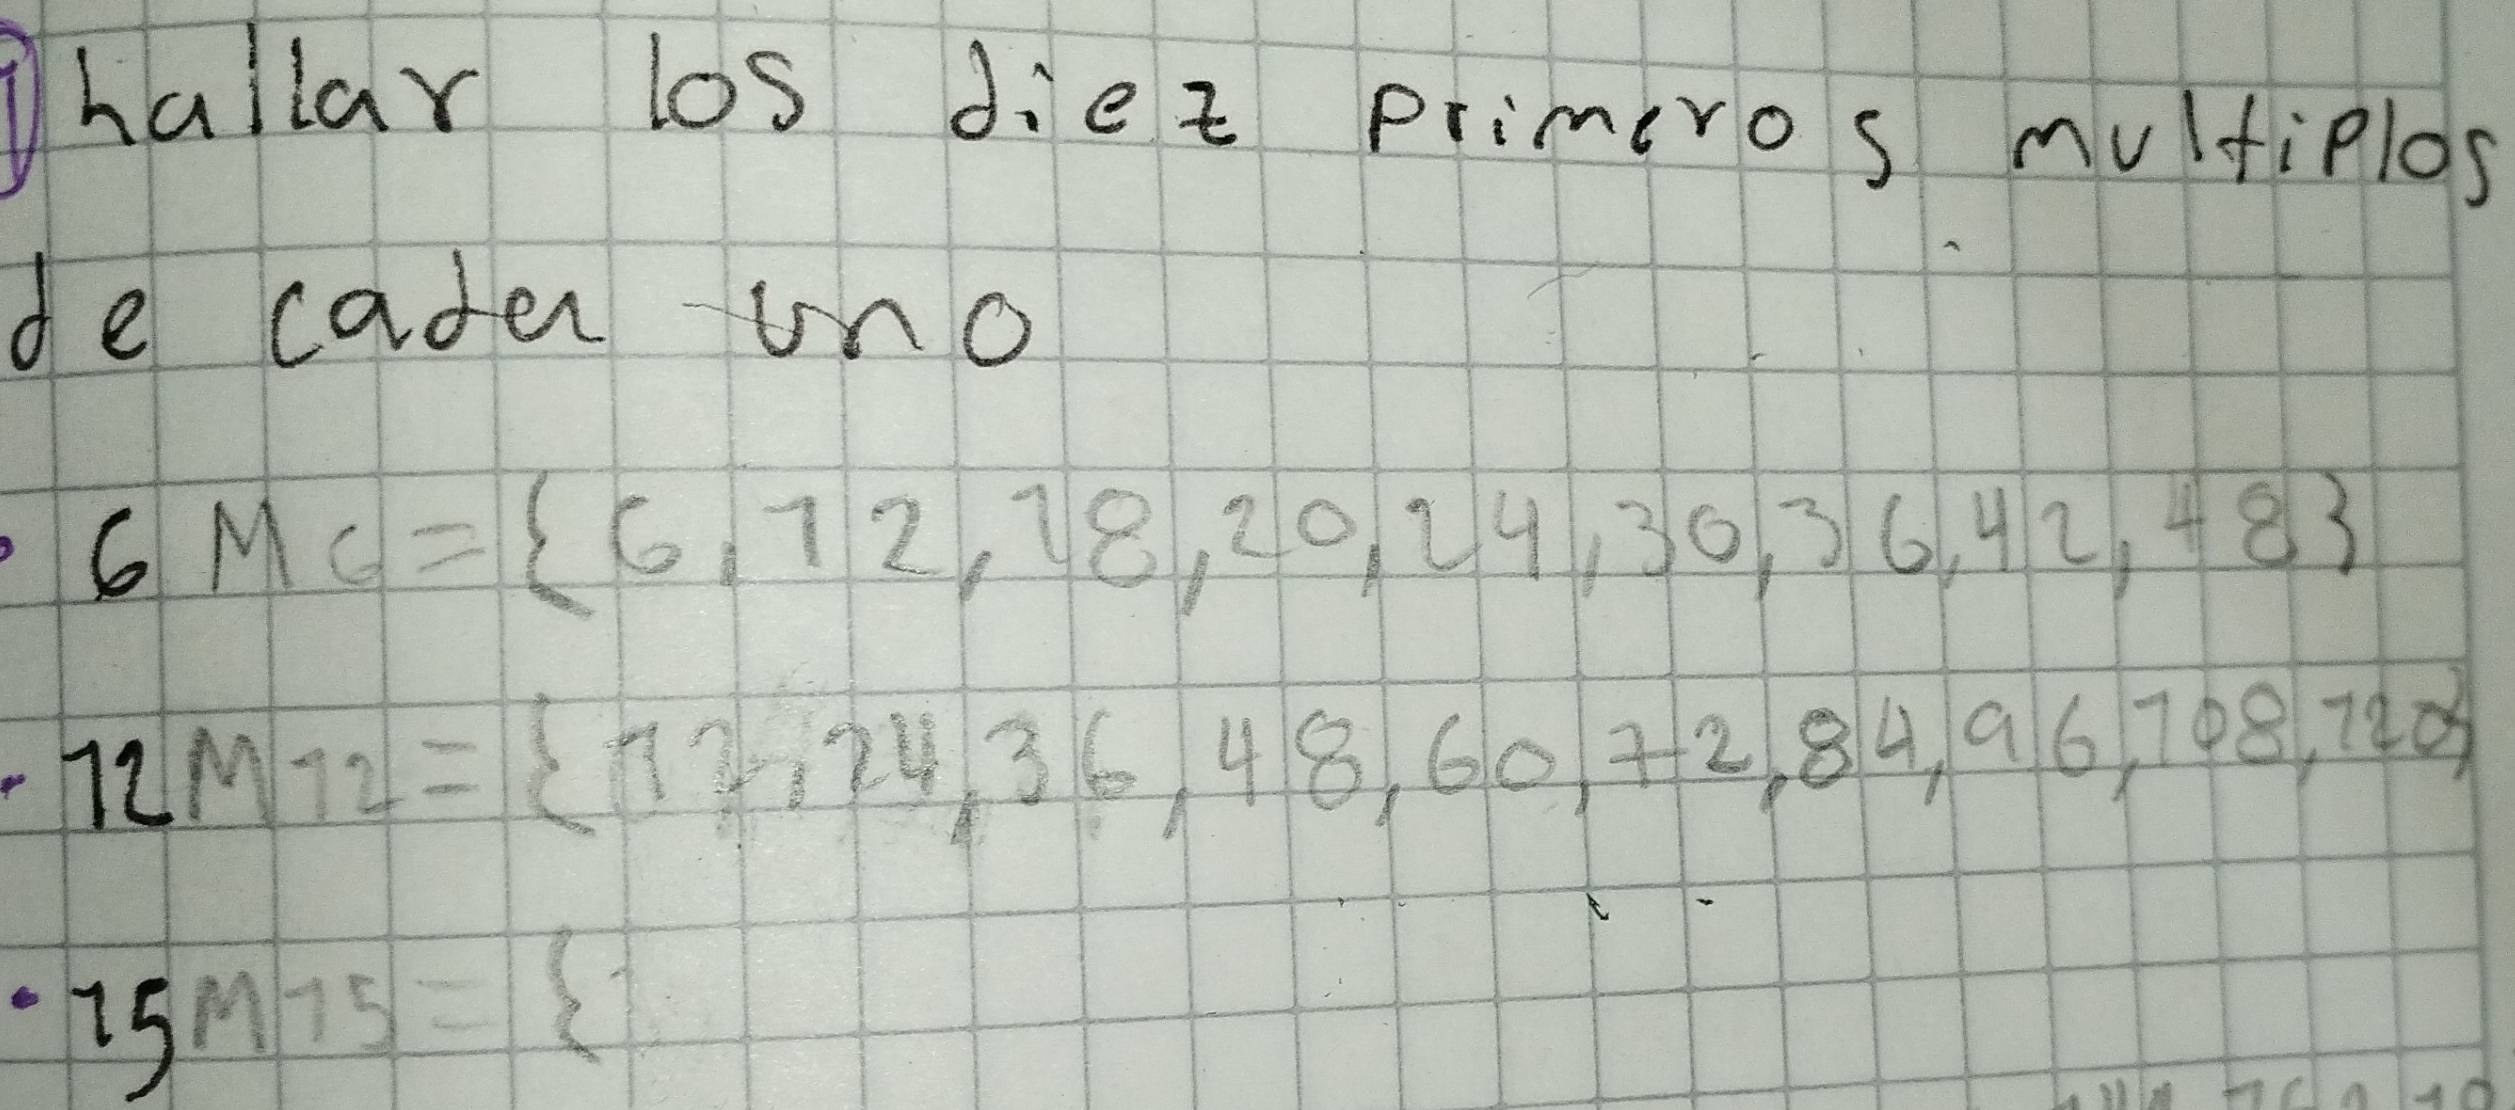 1 hallar los diez primeros multiplos
de cada uno
• 6 M6={6,12,18,20,24,30,36,42,48}
• 12 M12={12,24,36,48,60,72,84,96,108,120}
• 15 M15={